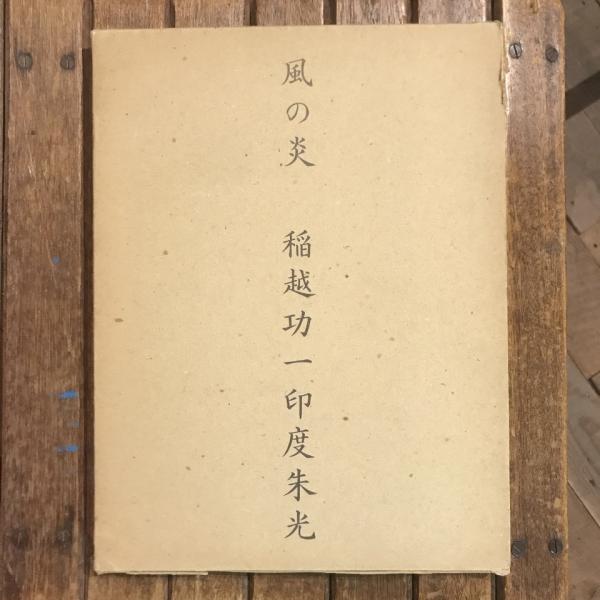 風の炎　稲越功一印度朱光